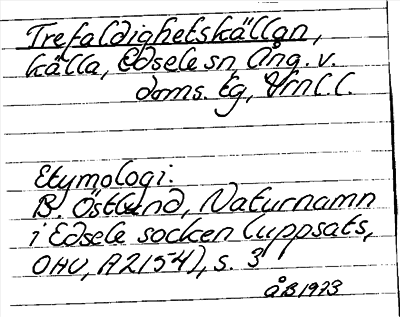 Trefaldighetskällan,
källa, Edsele sn, Ång. v.
doms. tg, Vrnl. l.
Etymologi:
B. Östlund, Naturnamn
i Edsele socken (uppsats,
OAU, A 2154), s. 3
ÅB 1973